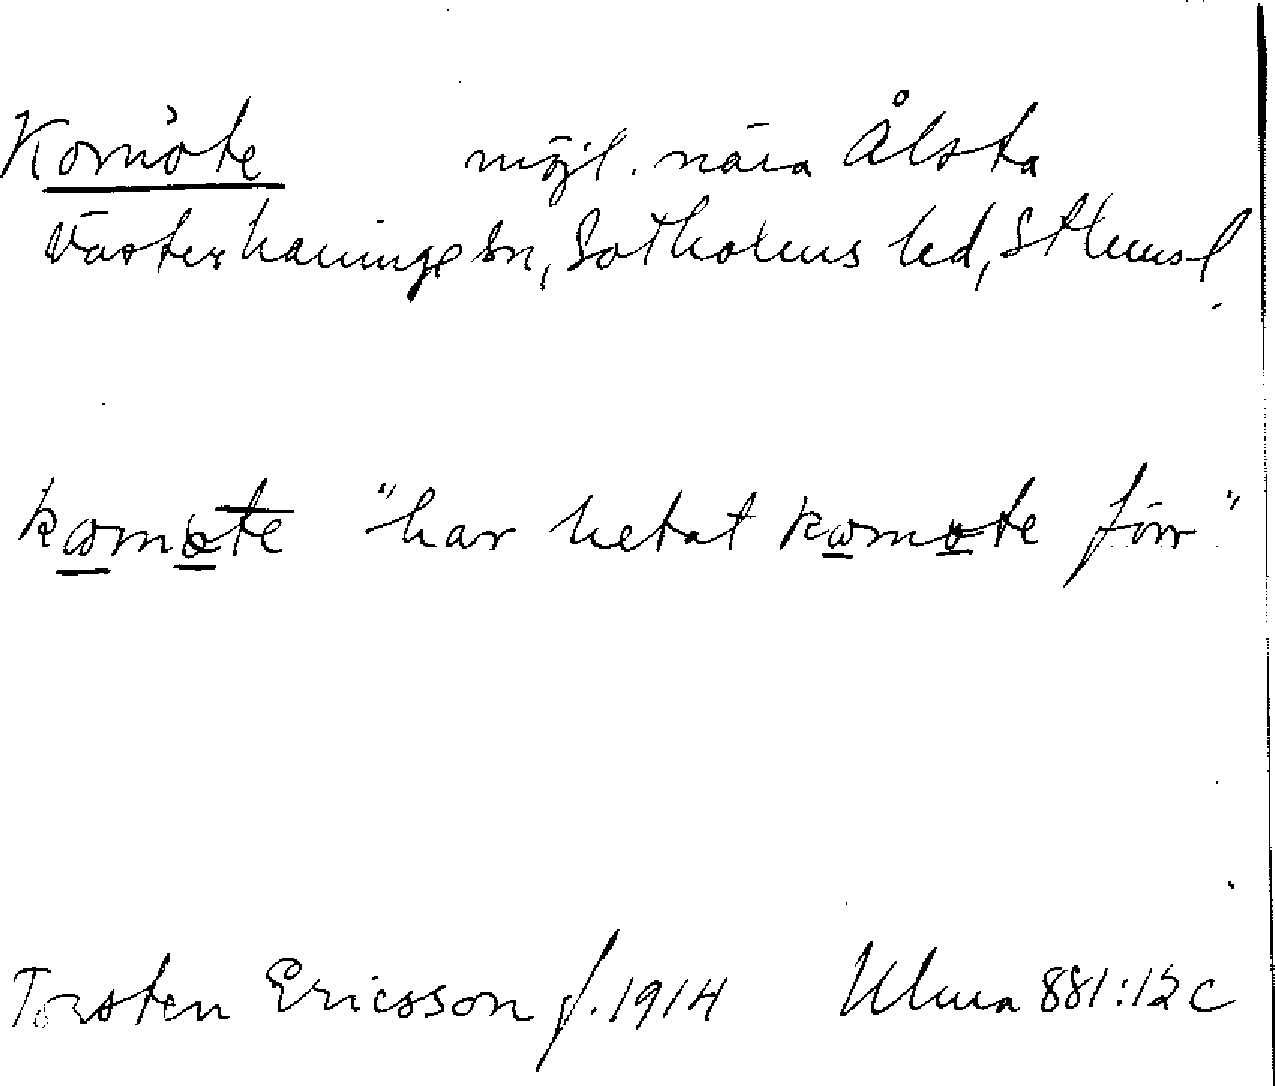 Komöte möjl. nära Ålsta
Västerhaninge sn, Sotholms hd, Sthmsl
"har hetat komote förr"
Torsten Ericsson f. 1914 Ulma 881:12c